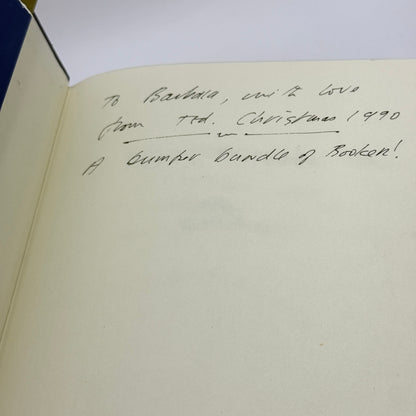 To Barbara, with love
from Ted. Christmas 1990
A bumper bundle of Booker!